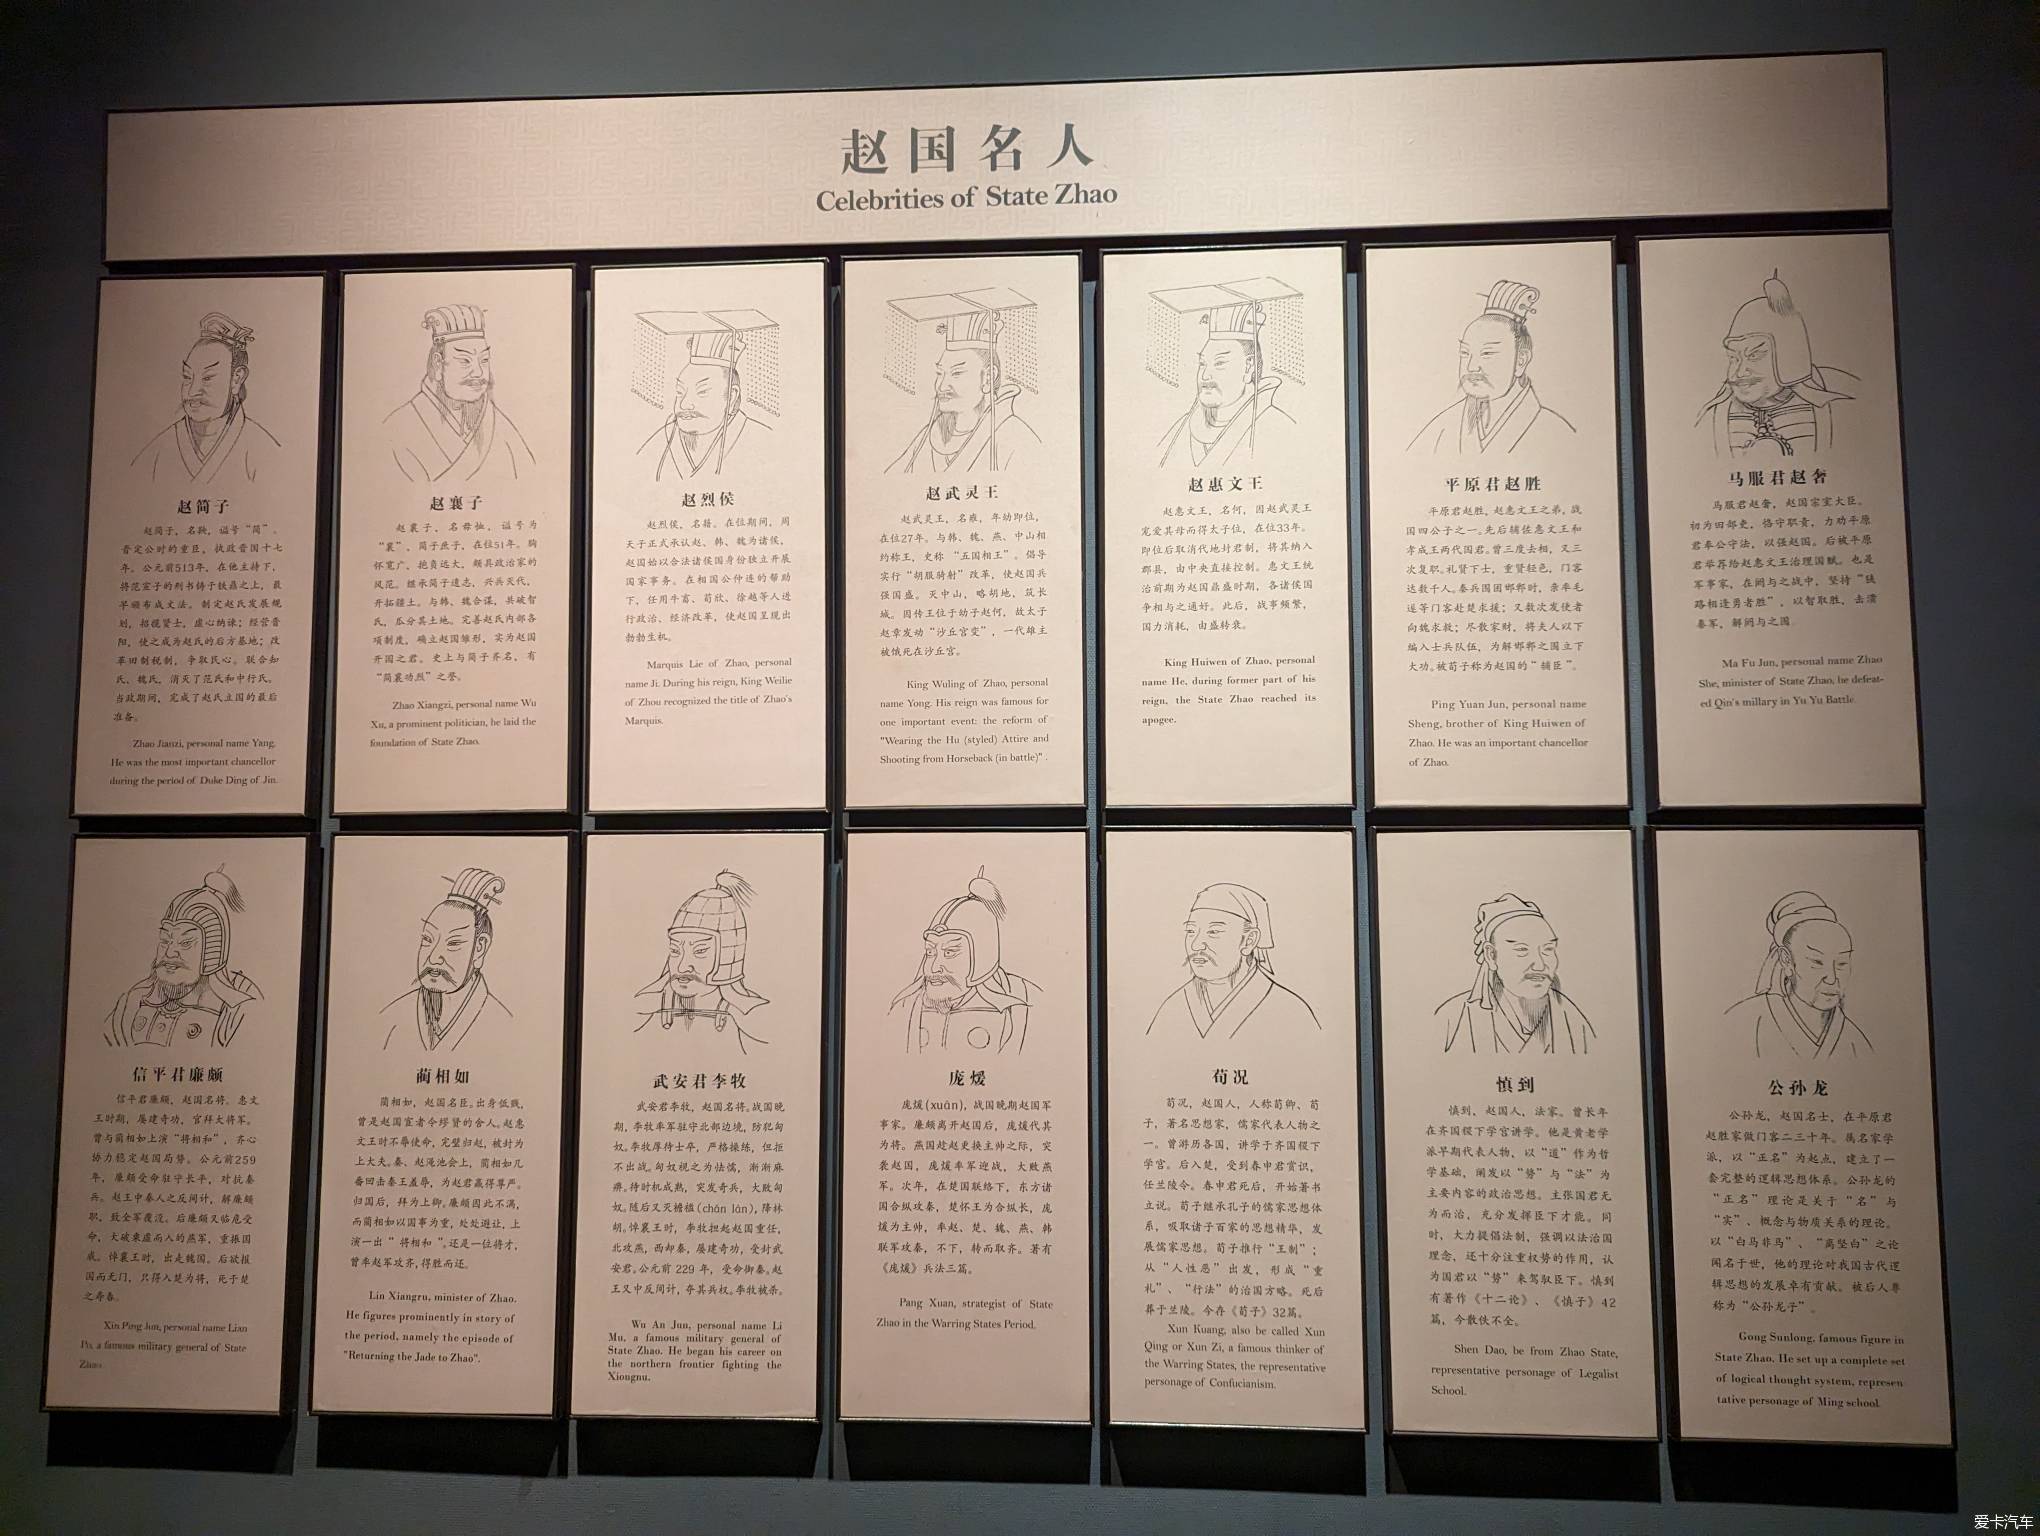 赵国名人
Celebrities of State Zhao
赵简子
赵简子，名鞅，谥号“简”。
晋定公时的重臣，执政晋国十七
年。公元前513年，在他主持下，
将范宣子的刑书铸于铁鼎之上，最
早颁布成文法。制定赵氏发展规
划，招揽贤士，虚心纳谏；经营晋
阳，使之成为赵氏的后方基地；改
革田制税制，争取民心。联合知
氏、魏氏，消灭了范氏和中行氏。
当政期间，完成了赵氏立国的最后
准备。
Zhao Jianzi, personal name Yang.
He was the most important chancellor
during the period of Duke Ding of Jin.
赵襄子
赵襄子，名毋恤，谥号为
“襄”，简子庶子，在位51年。胸
怀宽广，抱负远大，颇具政治家的
风范。继承简子遗志，兴兵灭代，
开拓疆土。与韩、魏合谋，共破智
氏，瓜分其土地。完善赵氏内部各
项制度，确立赵国雏形，实为赵国
开国之君。史上与简子齐名，有
“简襄功烈”之誉。
Zhao Xiangzi, personal name Wu
Xu, a prominent politician, he laid the
foundation of State Zhao.
赵烈侯
赵烈侯，名籍。在位期间，周
天子正式承认赵、韩、魏为诸侯，
赵国始以合法诸侯国身份独立开展
国家事务。在相国公仲连的帮助
下，任用牛畜、荀欣、徐越等人进
行政治、经济改革，使赵国呈现出
勃勃生机。
Marquis Lie of Zhao, personal
name Ji. During his reign, King Weilie
of Zhou recognized the title of Zhao's
Marquis.
赵武灵王
赵武灵王，名雍，年幼即位，
在位27年。与韩、魏、燕、中山相
约称王，史称“五国相王”。倡导
实行“胡服骑射”改革，使赵国兵
强国盛。灭中山，略胡地，筑长
城。因传王位于幼子赵何，故太子
赵章发动“沙丘宫变”，一代雄主
被饿死在沙丘宫。
King Wuling of Zhao, personal
name Yong. His reign was famous for
one important event: the reform of
"Wearing the Hu (styled) Attire and
Shooting from Horseback (in battle)" .
赵惠文王
赵惠文王，名何，因赵武灵王
宠爱其母而得太子位，在位33年。
即位后取消代地封君制，将其纳入
郡县，由中央直接控制。惠文王统
治前期为赵国鼎盛时期，各诸侯国
争相与之通好。此后，战事频繁，
国力消耗，由盛转衰。
King Huiwen of Zhao, personal
name He, during former part of his
reign, the State Zhao reached its
apogee.
平原君赵胜
平原君赵胜，赵惠文王之弟，战
国四公子之一。先后辅佐惠文王和
孝成王两代国君。曾三度去相，又三
次复职。礼贤下士，重贤轻色，门客
达数千人。秦兵围困邯郸时，亲率毛
遂等门客赴楚求援；又数次发使者
向魏求救；尽散家财，将夫人以下
编入士兵队伍，为解邯郸之围立下
大功。被荀子称为赵国的“辅臣”。
Ping Yuan Jun, personal name
Sheng, brother of King Huiwen of
Zhao. He was an important chancellor
of Zhao.
马服君赵奢
马服君赵奢，赵国宗室大臣。
初为田部吏，恪守职责，力劝平原
君奉公守法，以强赵国。后被平原
君举荐给赵惠文王治理国赋。也是
军事家，在阏与之战中，坚持“狭
路相逢勇者胜”，以智取胜，击溃
秦军，解阏与之围
Ma Fu Jun, personal name Zhao
She, minister of State Zhao, he defeat-
ed Qin's millary in Yu Yu Battle.
信平君廉颇
信平君廉颇，赵国名将。惠文
王时期，屡建奇功，官拜大将军。
曾与蔺相如上演“将相和”，齐心
协力稳定赵国局势。公元前259
年，廉颇受命驻守长平，对抗秦
兵。赵王中秦人之反间计，解廉颇
职，致全军覆没。后廉颇又临危受
命，大破乘虚而入的燕军，重振国
威。悼襄王时，出走魏国。后欲报
国而无门，只得入楚为将，死于楚
之寿春。
Xin Ping Jun, personal name Lian
Po, a famous military general of State
Zhao.
蔺相如
蔺相如，赵国名臣。出身低贱，
曾是赵国宦者令缪贤的舍人。赵惠
文王时不辱使命，完璧归赵，被封为
上大夫。秦、赵渑池会上，蔺相如几
番回击秦王羞辱，为赵君赢得尊严。
归国后，拜为上卿。廉颇因此不满，
而蔺相如以国事为重，处处避让，上
演一出“将相和”。还是一位将才，
曾率赵军攻齐，得胜而还。
Lin Xiangru, minister of Zhao.
He figures prominently in story of
the period, namely the episode of
"Returning the Jade to Zhao".
武安君李牧
武安君李牧，赵国名将。战国晚
期，李牧率军驻守北部边境，防犯匈
奴。李牧厚待士卒，严格操练，但拒
不出战。匈奴视之为怯懦，渐渐麻
痹。待时机成熟，突发奇兵，大败匈
奴。随后又灭襜褴(chān lán)，降林
胡。悼襄王时，李牧担起赵国重任，
北攻燕，西却秦，屡建奇功，受封武
安君。公元前 229 年，受命御秦。赵
王又中反间计，夺其兵权。李牧被杀。
Wu An Jun, personal name Li
Mu, a famous military general of
State Zhao. He began his career on
the northern frontier fighting the
Xiongnu.
庞煖
庞煖(xuān)，战国晚期赵国军
事家。廉颇离开赵国后，庞煖代其
为将。燕国趁赵更换主帅之际，突
袭赵国，庞煖率军迎战，大败燕
军。次年，在楚国联络下，东方诸
国合纵攻秦，楚怀王为合纵长，庞
煖为主帅，率赵、楚、魏、燕、韩
联军攻秦，不下，转而取齐。著有
《庞煖》兵法三篇。
Pang Xuan, strategist of State
Zhao in the Warring States Period.
荀况
荀况，赵国人，人称荀卿、荀
子，著名思想家，儒家代表人物之
一。曾游历各国，讲学于齐国稷下
学宫。后入楚，受到春申君赏识，
任兰陵令。春申君死后，开始著书
立说。荀子继承孔子的儒家思想体
系，吸取诸子百家的思想精华，发
展儒家思想。荀子推行“王制”；
从“人性恶”出发，形成“重
礼”、“行法”的治国方略。死后
葬于兰陵。今存《荀子》32篇。
Xun Kuang, also be called Xun
Qing or Xun Zi, a famous thinker of
the Warring States, the representative
personage of Confucianism.
慎到
慎到，赵国人，法家。曾长年
在齐国稷下学宫讲学。他是黄老学
派早期代表人物，以“道”作为哲
学基础，阐发以“势”与“法”为
主要内容的政治思想。主张国君无
为而治，充分发挥臣下才能。同
时，大力提倡法制，强调以法治国
理念，还十分注重权势的作用，认
为国君以“势”来驾驭臣下。慎到
有著作《十二论》、《慎子》42
篇，今散佚不全。
Shen Dao, be from Zhao State,
representative personage of Legalist
School.
公孙龙
公孙龙，赵国名士，在平原君
赵胜家做门客二三十年。属名家学
派，以“正名”为起点，建立了一
套完整的逻辑思想体系。公孙龙的
“正名”理论是关于“名”与
“实”、概念与物质关系的理论。
以“白马非马”、“离坚白”之论
闻名于世，他的理论对我国古代逻
辑思想的发展卓有贡献。被后人尊
称为“公孙龙子”。
Gong Sunlong, famous figure in
State Zhao. He set up a complete set
of logical thought system, represen
tative personage of Ming school.
爱卡汽车